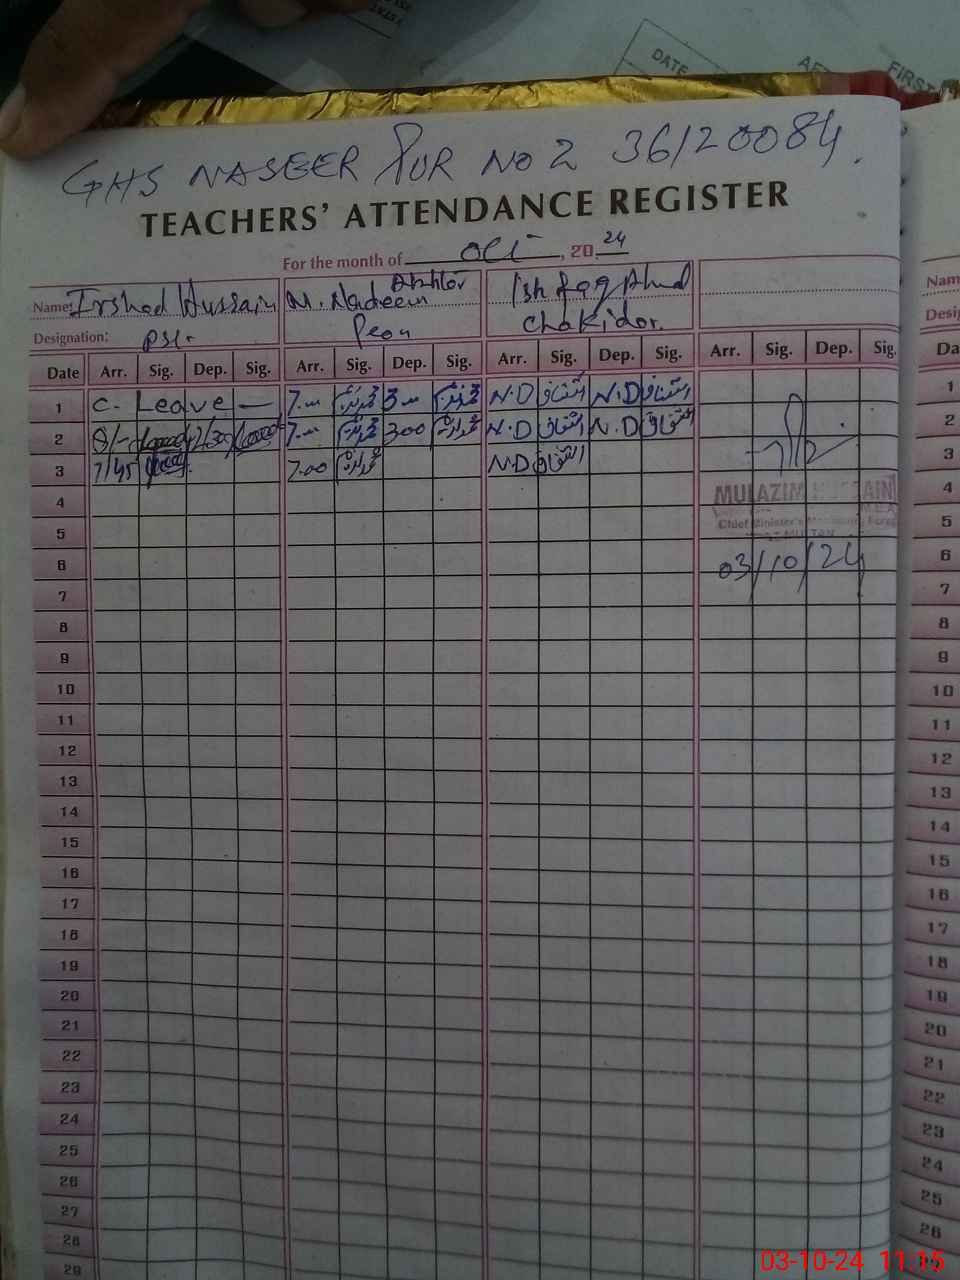 DATE
FIRST
GHS NASEER PUR NO 2 36120084.
TEACHERS' ATTENDANCE REGISTER
For the month of Oct, 2024
Name: Irshad Hussain M. Nadeem Akhtar Ishfaq Ahmd
Designation: PST. Peon Chokidor.
Date Arr. Sig. Dep. Sig. Arr. Sig. Dep. Sig. Arr. Sig. Dep. Sig. Arr. Sig. Dep. Sig.
1 C. Leave — 7.00 3.00 N.D اشفاق N.D اشفاق 1
2 8/- 2/30 7.00 300 N.D اشفاق N.D اشفاق 2
3 7/45 7.00 N.D اشفاق 3
4 MULAZIM HUSSAIN 4
5 Chief Minister's Monitoring Force 5
MULTAN
6 03/10/24 6
7 7
8 8
9 9
10 10
11 11
12 12
13 13
14 14
15 15
16 16
17 17
18 18
19 19
20 20
21 21
22 22
23 23
24 24
25 25
26 26
27
28
29
03-10-24 11:15